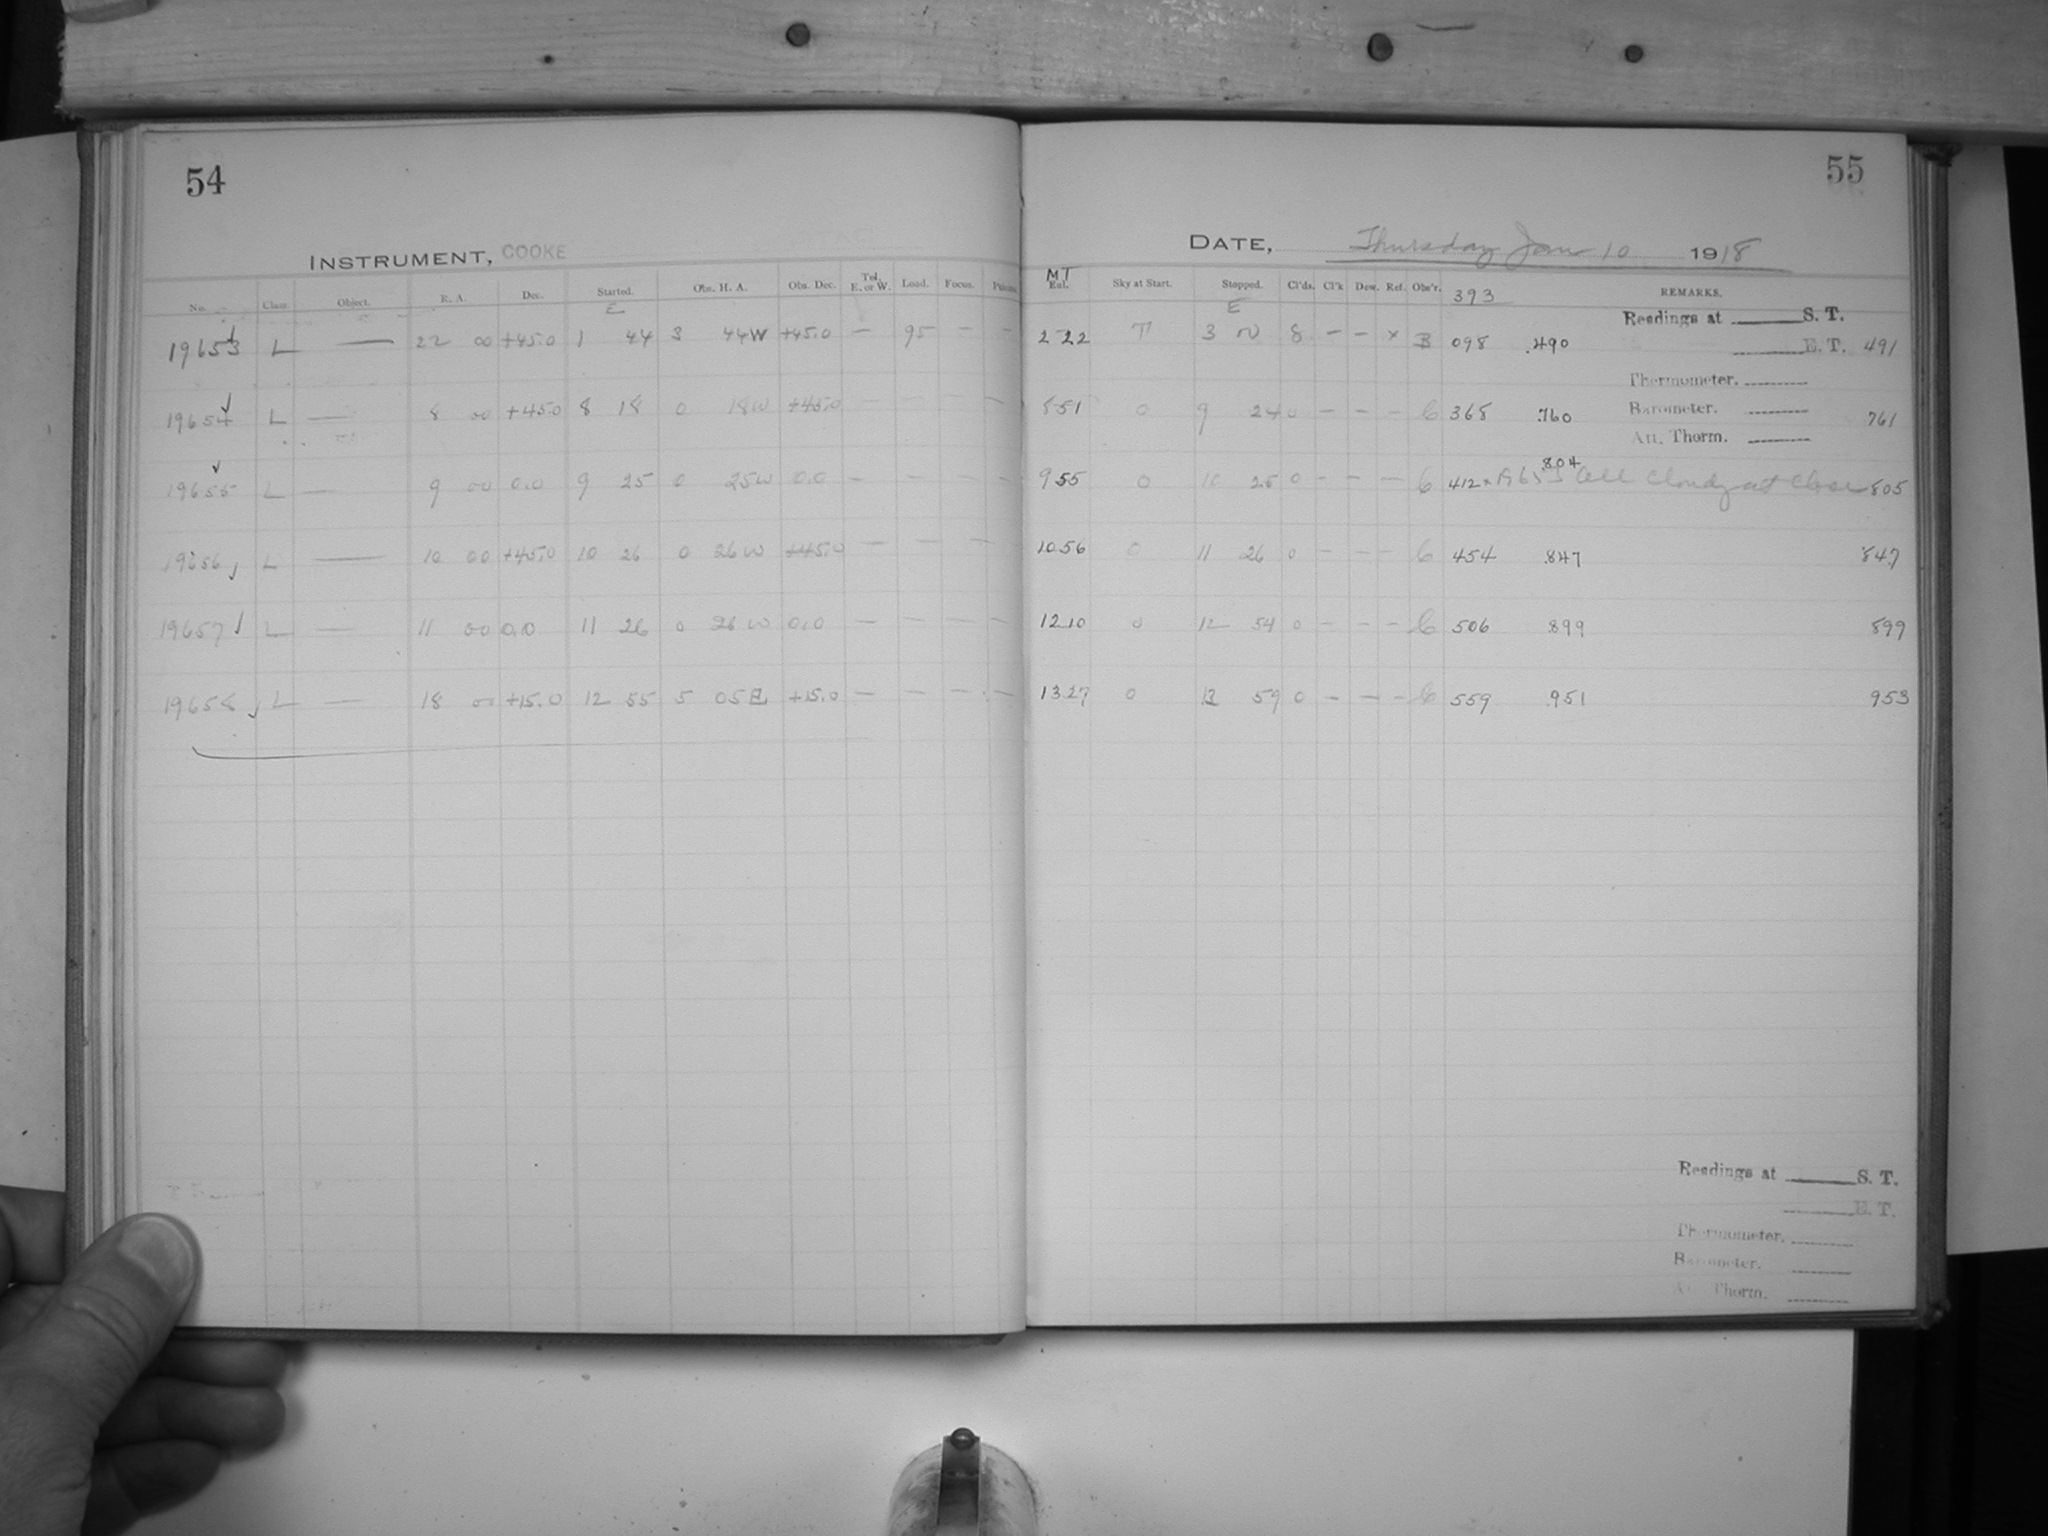 54
55
INSTRUMENT, COOKE
DATE, Thursday Jan 10 1918
No. Class. Object. R. A. Dec. Started. Obs. H. A. Obs. Dec. Tel. E. or W. Load. Focus.
E
MT Sky at Start. Stopped. Cl'ds. Cl'k Dew. Ref. Obs'r. 393 REMARKS.
E
Readings at S. T.
19653 L — 22 00 +45.0 1 44 3 44W +45.0 — 95 — —
2 22 T 3 8 — — x B 098 .490 E. T. 491
Thermometer.
19654 L — 8 00 +45.0 8 18 0 18W +45.0 — — — —
8 51 0 9 24 0 — — — C 365 .760 Barometer. 761
Att. Thorm.
19655 L — 9 00 0.0 9 25 0 25W 0.0 — — — —
9 55 0 10 25 0 — — — C 412 x .804 All Cloudy at Close 805
19656 L — 10 00 +45.0 10 26 0 26W +45.0 — — — —
10 56 0 11 26 0 — — — C 454 .847 847
19657 L — 11 00 0.0 11 26 0 26W 0.0 — — — —
12 10 0 12 54 0 — — — C 506 .899 899
19658 L — 18 00 +15.0 12 55 5 05E +15.0 — — — —
13 27 0 13 59 0 — — — C 559 .951 953
Readings at S. T.
E. T.
Thermometer.
Barometer.
Att. Thorm.